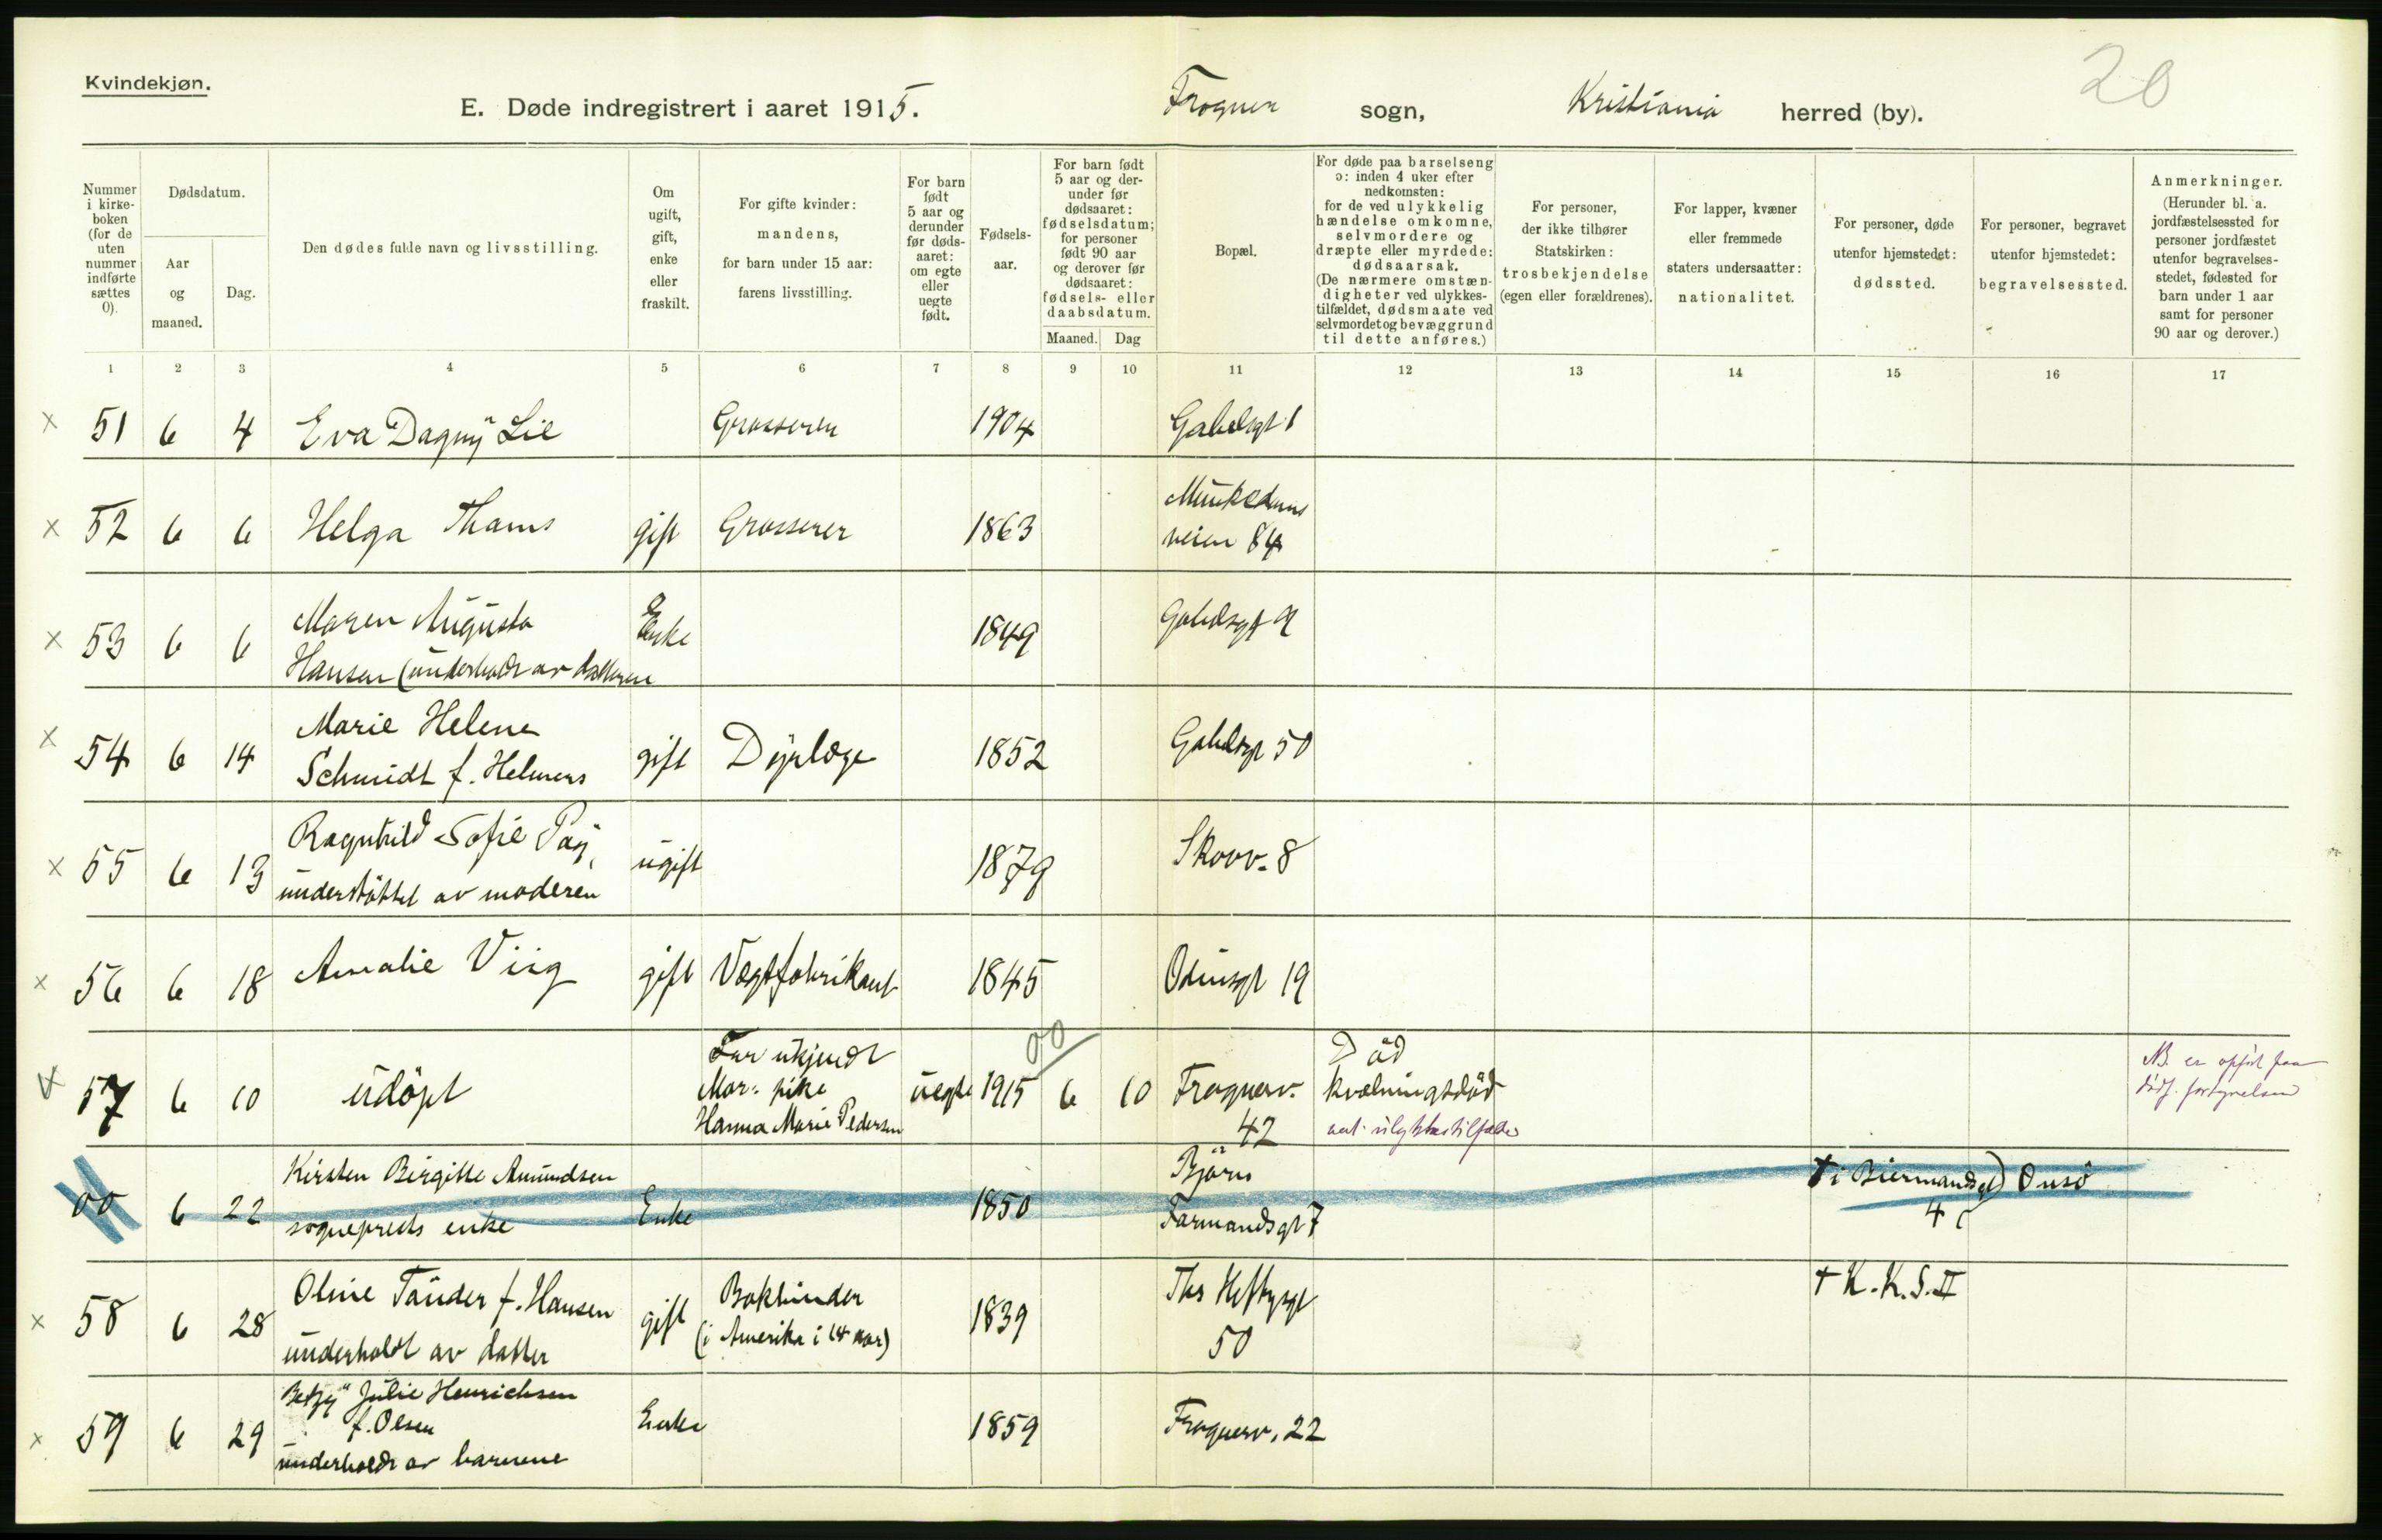 Kvindekjøn.
20
E. Døde indregistrert i aaret 1915.
Frogner sogn, Kristiania herred (by).
Nummer i kirke-boken (for de uten nummer indførte sættes 0).
Dødsdatum.
Aar og maaned.
Dag.
Den dødes fulde navn og livsstilling.
Om ugift, gift, enke eller fraskilt.
For gifte kvinder: mandens, for barn under 15 aar: farens livsstilling.
For barn født 5 aar og derunder før døds-aaret: om egte eller uegte født.
Fødsels-aar.
For barn født 5 aar og der-under før dødsaaret: fødselsdatum; for personer født 90 aar og derover før dødsaaret: fødsels- eller daabsdatum.
Maaned. Dag
Bopæl.
For døde paa barselseng ɔ: inden 4 uker efter nedkomsten: for de ved ulykkelig hændelse omkomne, selvmordere og dræpte eller myrdede: dødsaarsak. (De nærmere omstæn-digheter ved ulykkes-tilfældet, dødsmaate ved selvmordet og bevæggrund til dette anføres.)
For personer, der ikke tilhører Statskirken: trosbekjendelse (egen eller forældrenes).
For lapper, kvæner eller fremmede staters undersaatter: nationalitet.
For personer, døde utenfor hjemstedet: dødssted.
For personer, begravet utenfor hjemstedet: begravelsessted.
Anmerkninger. (Herunder bl. a. jordfæstelsessted for personer jordfæstet utenfor begravelses-stedet, fødested for barn under 1 aar samt for personer 90 aar og derover.)
1 2 3 4 5 6 7 8 9 10 11 12 13 14 15 16 17
x 51 6 4 Eva Dagny Lie Grosserer 1904 Gabelsgt 1
x 52 6 6 Helga Thams gift Grosserer 1863 Munkedams
veien 84
x 53 6 6 Maren Augusta Enke 1849 Gabelsgt 9
Hansen (underholdt av datteren
x 54 6 14 Marie Helene
Schmidt f. Helmers gift Dyrlæge 1852 Gabelsgt 50
x 55 6 13 Ragnhild Sofie Pay,
understøttet av moderen ugift 1879 Skovv. 8
x 56 6 18 Amalie Viig gift Vægtfabrikant 1845 Odinsgt 19
57 6 10 udöpt Far ukjendt
Mor: pike
Hanna Marie Pedersen uegte 1915 00 6 10 Frognerv.
42
Död
kvælningsdöd
ant. ulykkestilfælde
NB. er opført paa
dødf. fortegnelsen
00 6 22 Kirsten Birgitte Amundsen
sogneprests enke Enke 1850 Björn
Farmandsgt 7 † i Biermandsgt) Onsö
4
x 58 6 28 Oline Tander f. Hansen
underholdt av datter gift Bokbinder
(i Amerika i 14 aar) 1839 Ths Heftysgt
50 † K.K.S. II
x 59 6 29 Betzy Julie Henrichsen
f. Olsen
underholdt av barnene Enke 1859 Frognerv. 22